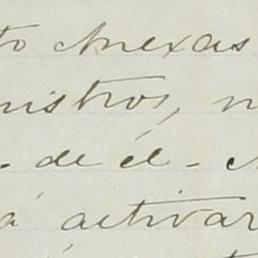 to Anexas
nistros, n
- de él -
a activar